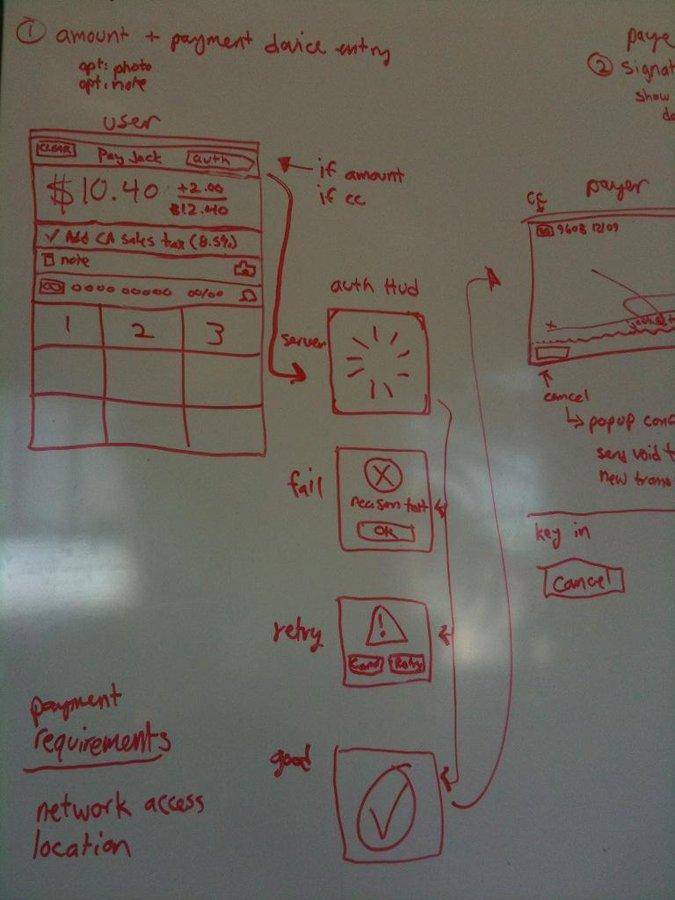 ① amount + payment device entry
opt: photo
opt: note
user
CLEAR Pay Jack auth
$10.40 +2.00
$12.40
✓ Add CA sales tax (8.5%)
note
00/00
1 2 3
if amount
if cc
auth Hud
server
fail
X
reason text
OK
retry
!
Retry
good
payment
requirements
network access
location
paye
② Signat
show
payer
CC
9603 12/09
x
cancel
popup conf
send void t
new trans
key in
Cancel